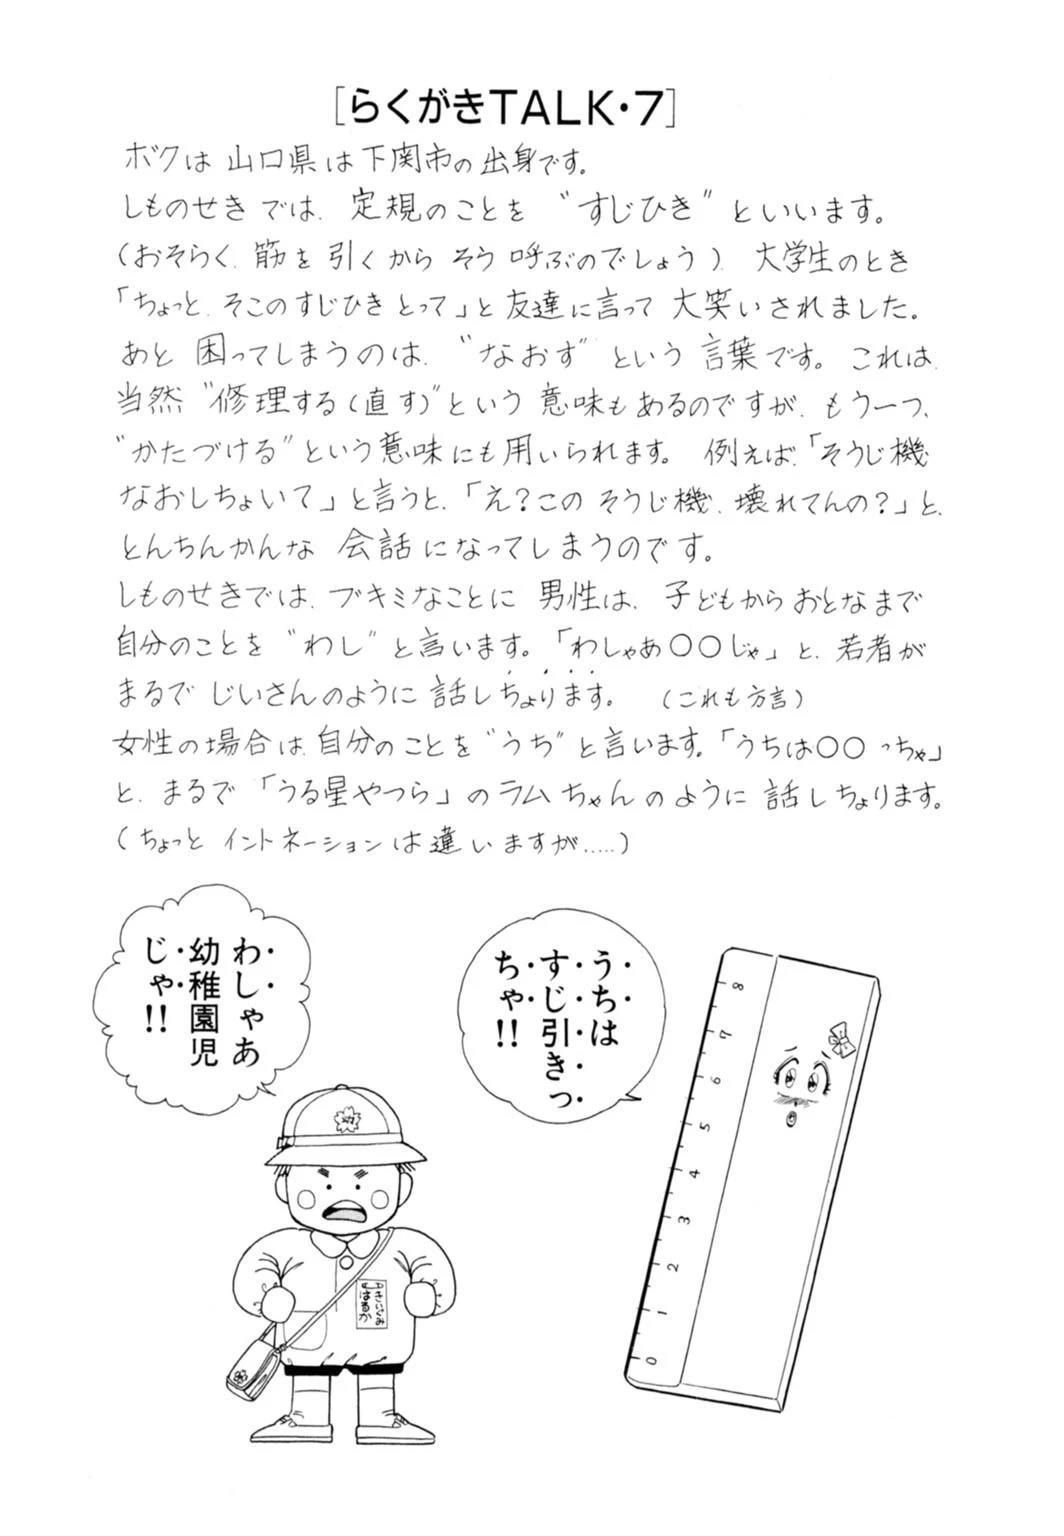 [らくがきTALK・7]
ボクは山口県は下関市の出身です。
しものせきでは、定規のことを〝すじひき〟といいます。
(おそらく、筋を引くからそう呼ぶのでしょう)、大学生のとき
「ちょっと、そこのすじひきとって」と友達に言って大笑いされました。
あと困ってしまうのは、〝なおす〟という言葉です。これは、
当然〝修理する(直す)〟という意味もあるのですが、もう一つ、
〝かたづける〟という意味にも用いられます。例えば、「そうじ機
なおしちょいて」と言うと、「え?このそうじ機、壊れてんの?」と、
とんちんかんな会話になってしまうのです。
しものせきでは、ブキミなことに男性は、子どもからおとなまで
自分のことを〝わし〟と言います。「わしゃあ〇〇じゃ」と、若者が
まるでじいさんのように話しちょります。(これも方言)
女性の場合は、自分のことを〝うち〟と言います。「うちは〇〇っちゃ」
と、まるで「うる星やつら」のラムちゃんのように話しちょります。
(ちょっとイントネーションは違いますが.....)
うちは
すじ引きっ
ちゃ!!
わしゃあ
幼稚園児
じゃ!!
8
7
6
5
4
3
2
1
0
はるか